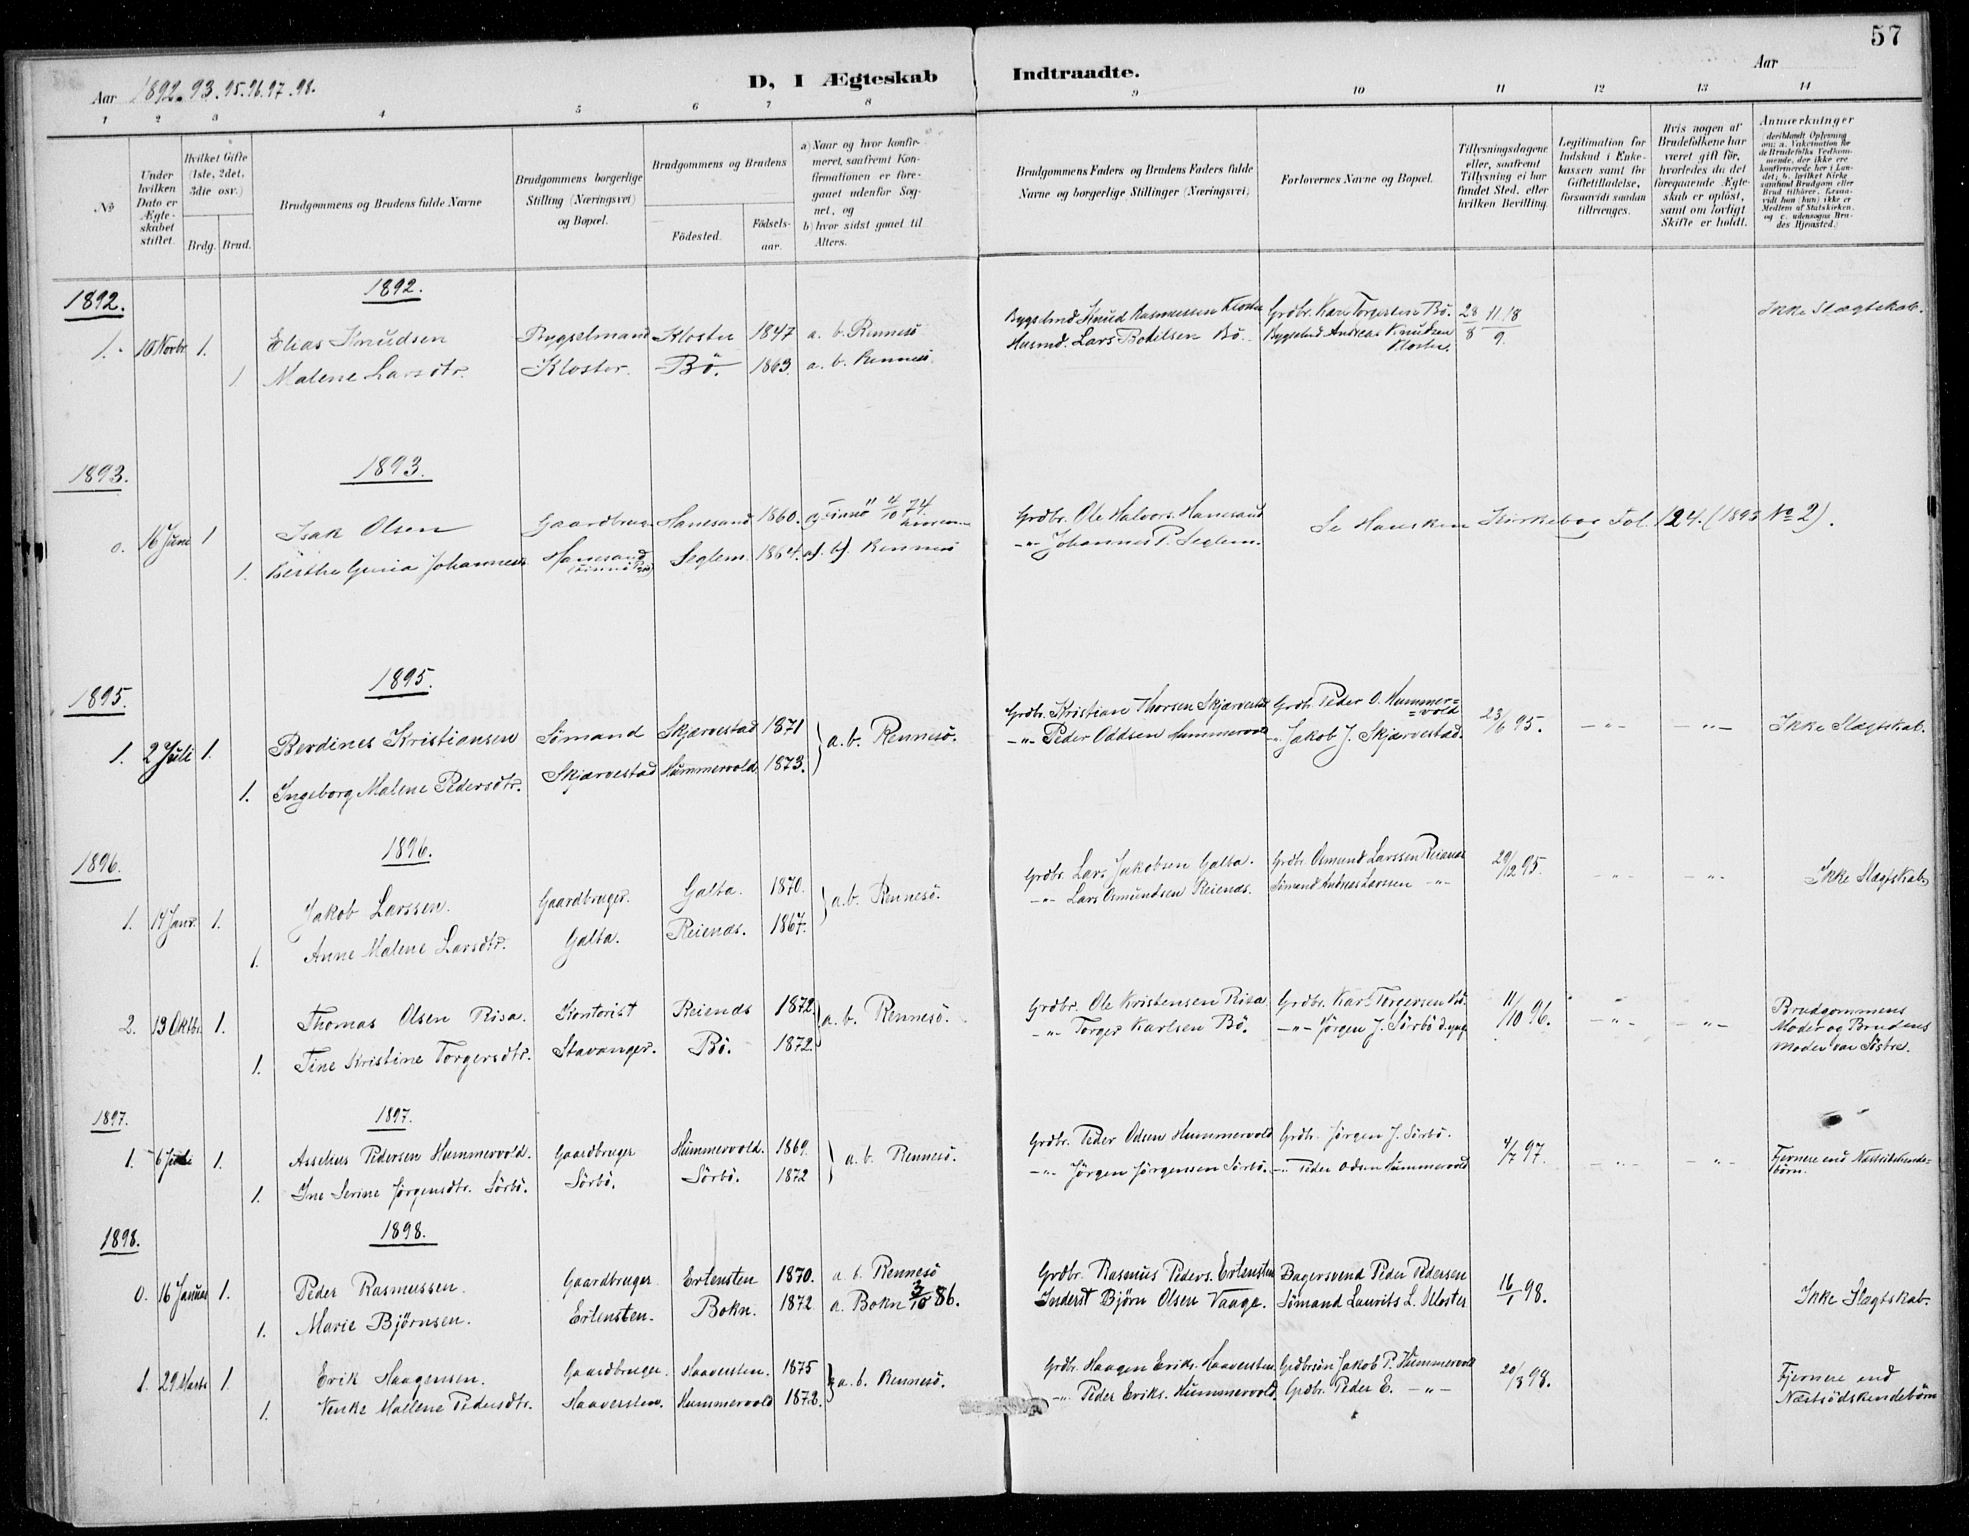 57
Aar 1892. 93. 95. 96. 97. 98.
D, I Ægteskab Indtraadte.
Aar
1 2 3 4 5 6 7 8 9 10 11 12 13 14
No
Under hvilken Dato er Ægteskabet stiftet.
Hvilket Gifte (1ste, 2det, 3die osv.)
Brdg. Brud.
Brudgommens og Brudens fulde Navne
Brudgommens borgerlige Stilling (Næringsvei) og Bopæl.
Brudgommens og Brudens
Fødested.
Fødsels-aar.
a) Naar og hvor konfir-
meret, saafremt Kon-
firmationen er fore-
gaaet udenfor Sog-
net, og
b) hvor sidst gaaet til
Alters.
Brudgommens Faders og Brudens Faders fulde
Navne og borgerlige Stillinger (Næringsvei)
Forlovernes Navne og Bopæl.
Tillysningsdagene
eller, saafremt
Tillysning ei har
fundet Sted, efter
hvilken Bevilling.
Legitimation for
Indskud i Enke-
kassen samt for
Giftetilladelse,
forsaavidt saadan
tiltrænges.
Hvis nogen af
Brudefolkene har
været gift før,
hvorledes da det
foregaaende Ægte-
skab er opløst,
samt om lovligt
Skifte er holdt.
Anmærkninger
deriblandt Oplysning
om: a. Vakcination for
de Brudefolks Vedkom-
mende, der ikke ere
konfirmerede her i Lan-
det, b. hvilket Kirke-
samfund Brudgom eller
Brud tilhører, forsaa-
vidt han (hun) ikke er
Medlem af Statskirken,
og c. udensogns Bru-
des Hjemsted.
1892. 1892.
1. 10 Novbr 1. Elias Knudsen Bygselmand Kloster 1847 a. b. Rennesö Bygselmd Knud Rasmussen Kloster Grdbr. Karl Torgersen Bö. 28/8 11. 18/9. Ikke Slægtskab.
1 Malene Larsdtr. Kloster. Bö. 1863. a. b. Rennesö. Husmd. Lars Botelsen Bö. Bygselmd Andreas Knudsen Kloster.
1893. 1893.
0. 16 Juni 1 Isak Olsen Gaardbrug. Hanesand 1860. 4/10 74. Grdbr. Ole Halvors. Hanesand Se Hausken Kirkebog Fol. 124. (1893 No 2).
1. Berthe Guria Johannes Hanesand Seglem. 1864. a). b) Rennesö -"- Johannes P. Seglem.
1895. 1895.
1. 2 Juli 1. Berdines Kristiansen Sömand Skjærvestad 1871 a. b. Rennesö. Grdbr. Kristian Thorsen Skjærvestad Grdb. Peder O. Hummer=
=vold 23/6 95. -"- -"- Ikke Slægtskab.
1. Ingeborg Malene Pedersdtr. Skjærvestad Hummervold 1873. -"- Peder Oddsen Hummervold " Jakob J. Skjærvestad.
1896. 1896.
1. 14 Janr. 1. Jakob Larssen. Gaardbruger. Galta. 1870. a. b. Rennesö. Grdbr. Lars Jakobsen Galta. Grdbr. Osmund Larssen Reiends 29/12 95. -"- -"- Ikke Slægtskab.
1. Anne Malene Larsdtr. Galta. Reiends. 1867. -"- Lars Osmundsen Reiends. Sömand Andreas Larssen -"-
2. 13 Oktbr. 1. Thomas Olsen Risa. Kontorist Reiends 1872. a. b. Rennesö. Grdbr. Ole Kristensen Risa. Grdbr. Karl Torgersen Bö. 11/10 96. -"- -"- Brudgommens
Moder og Brudens
Moder var Söstre.
1. Tine Kristine Torgersdtr. Stavanger. Bö. 1872. -"- Torger Karlsen Bö. -"- Jörgen J. Sörbö d. yng
1897. 1897.
1. 6 Juli 1. Asselius Pedersen Hummervold. Gaardbruger Hummervold. 1869. a. b. Rennesö. Grdbr. Peder Odsen Hummervold Grdbr. Jörgen J. Sörbö. 4/7 97. -"- -"- Fjernere end Næstsödskende-
börn.
1. Ine Serine Jörgensdtr. Sörbö. Sörbö. Sörbö. 1872 -"- Jörgen Jörgensen Sörbö. -"- Peder Odsen Hummervold
1898. 1898.
0. 16 Januar 1. Peder Rasmussen. Gaardbruger Ertensten 1870. a. b. Rennesö Grdbr. Rasmus Peders. Ertensten Bagersvend Peder Pedersen 16/1 98. Ikke Slægtskab.
1. Marie Björnsen. Ertensten. Bokn. 1872 a. Bokn 3/10 86. Inderst Björn Olsen Vaage. Sömand Laurits L. Kloster
1. 29 Marts 1. Erik Haagensen. Gaardbruger Haaversten. 1875 a. b. Rennesö. Grdbr. Haagen Eriks. Haaversten. Grdbrsön Jakob P. Hummervold 20/3 98. Fjernere end
Næstsödskendebörn
1. Venke Mallene Pedersdtr. Haaversten. Hummervold 1872. -"- Peder Eriks. Hummervold. Grdbr. Peder E. -"-